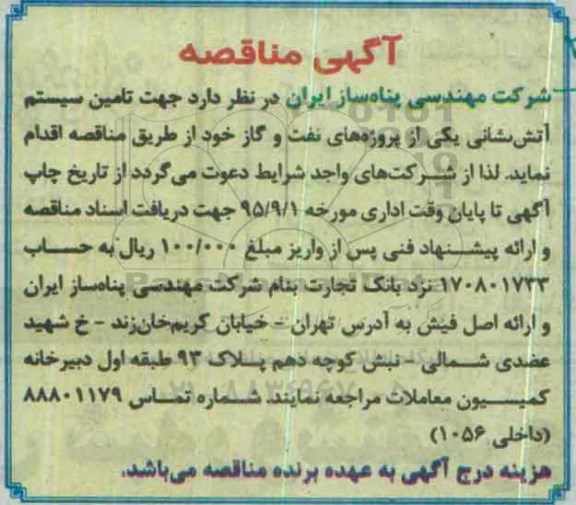 آگهی مناقصه
شرکت مهندسی پناه‌ساز ایران در نظر دارد جهت تامین سیستم
آتش‌نشانی یکی از پروژه‌های نفت و گاز خود از طریق مناقصه اقدام
نماید. لذا از شرکت‌های واجد شرایط دعوت می‌گردد از تاریخ چاپ
آگهی تا پایان وقت اداری مورخه ۹۵/۹/۱ جهت دریافت اسناد مناقصه
و ارائه پیشنهاد فنی پس از واریز مبلغ ۱۰۰/۰۰۰ ریال به حساب
۱۷۰۸۰۱۷۳۳ نزد بانک تجارت بنام شرکت مهندسی پناه‌ساز ایران
و ارائه اصل فیش به آدرس تهران - خیابان کریم‌خان‌زند - خ شهید
عضدی شمالی - نبش کوچه دهم پلاک ۹۳ طبقه اول دبیرخانه
کمیسیون معاملات مراجعه نمایند. شماره تماس ۸۸۸۰۱۱۷۹
(داخلی ۱۰۵۶)
هزینه درج آگهی به عهده برنده مناقصه می‌باشد.